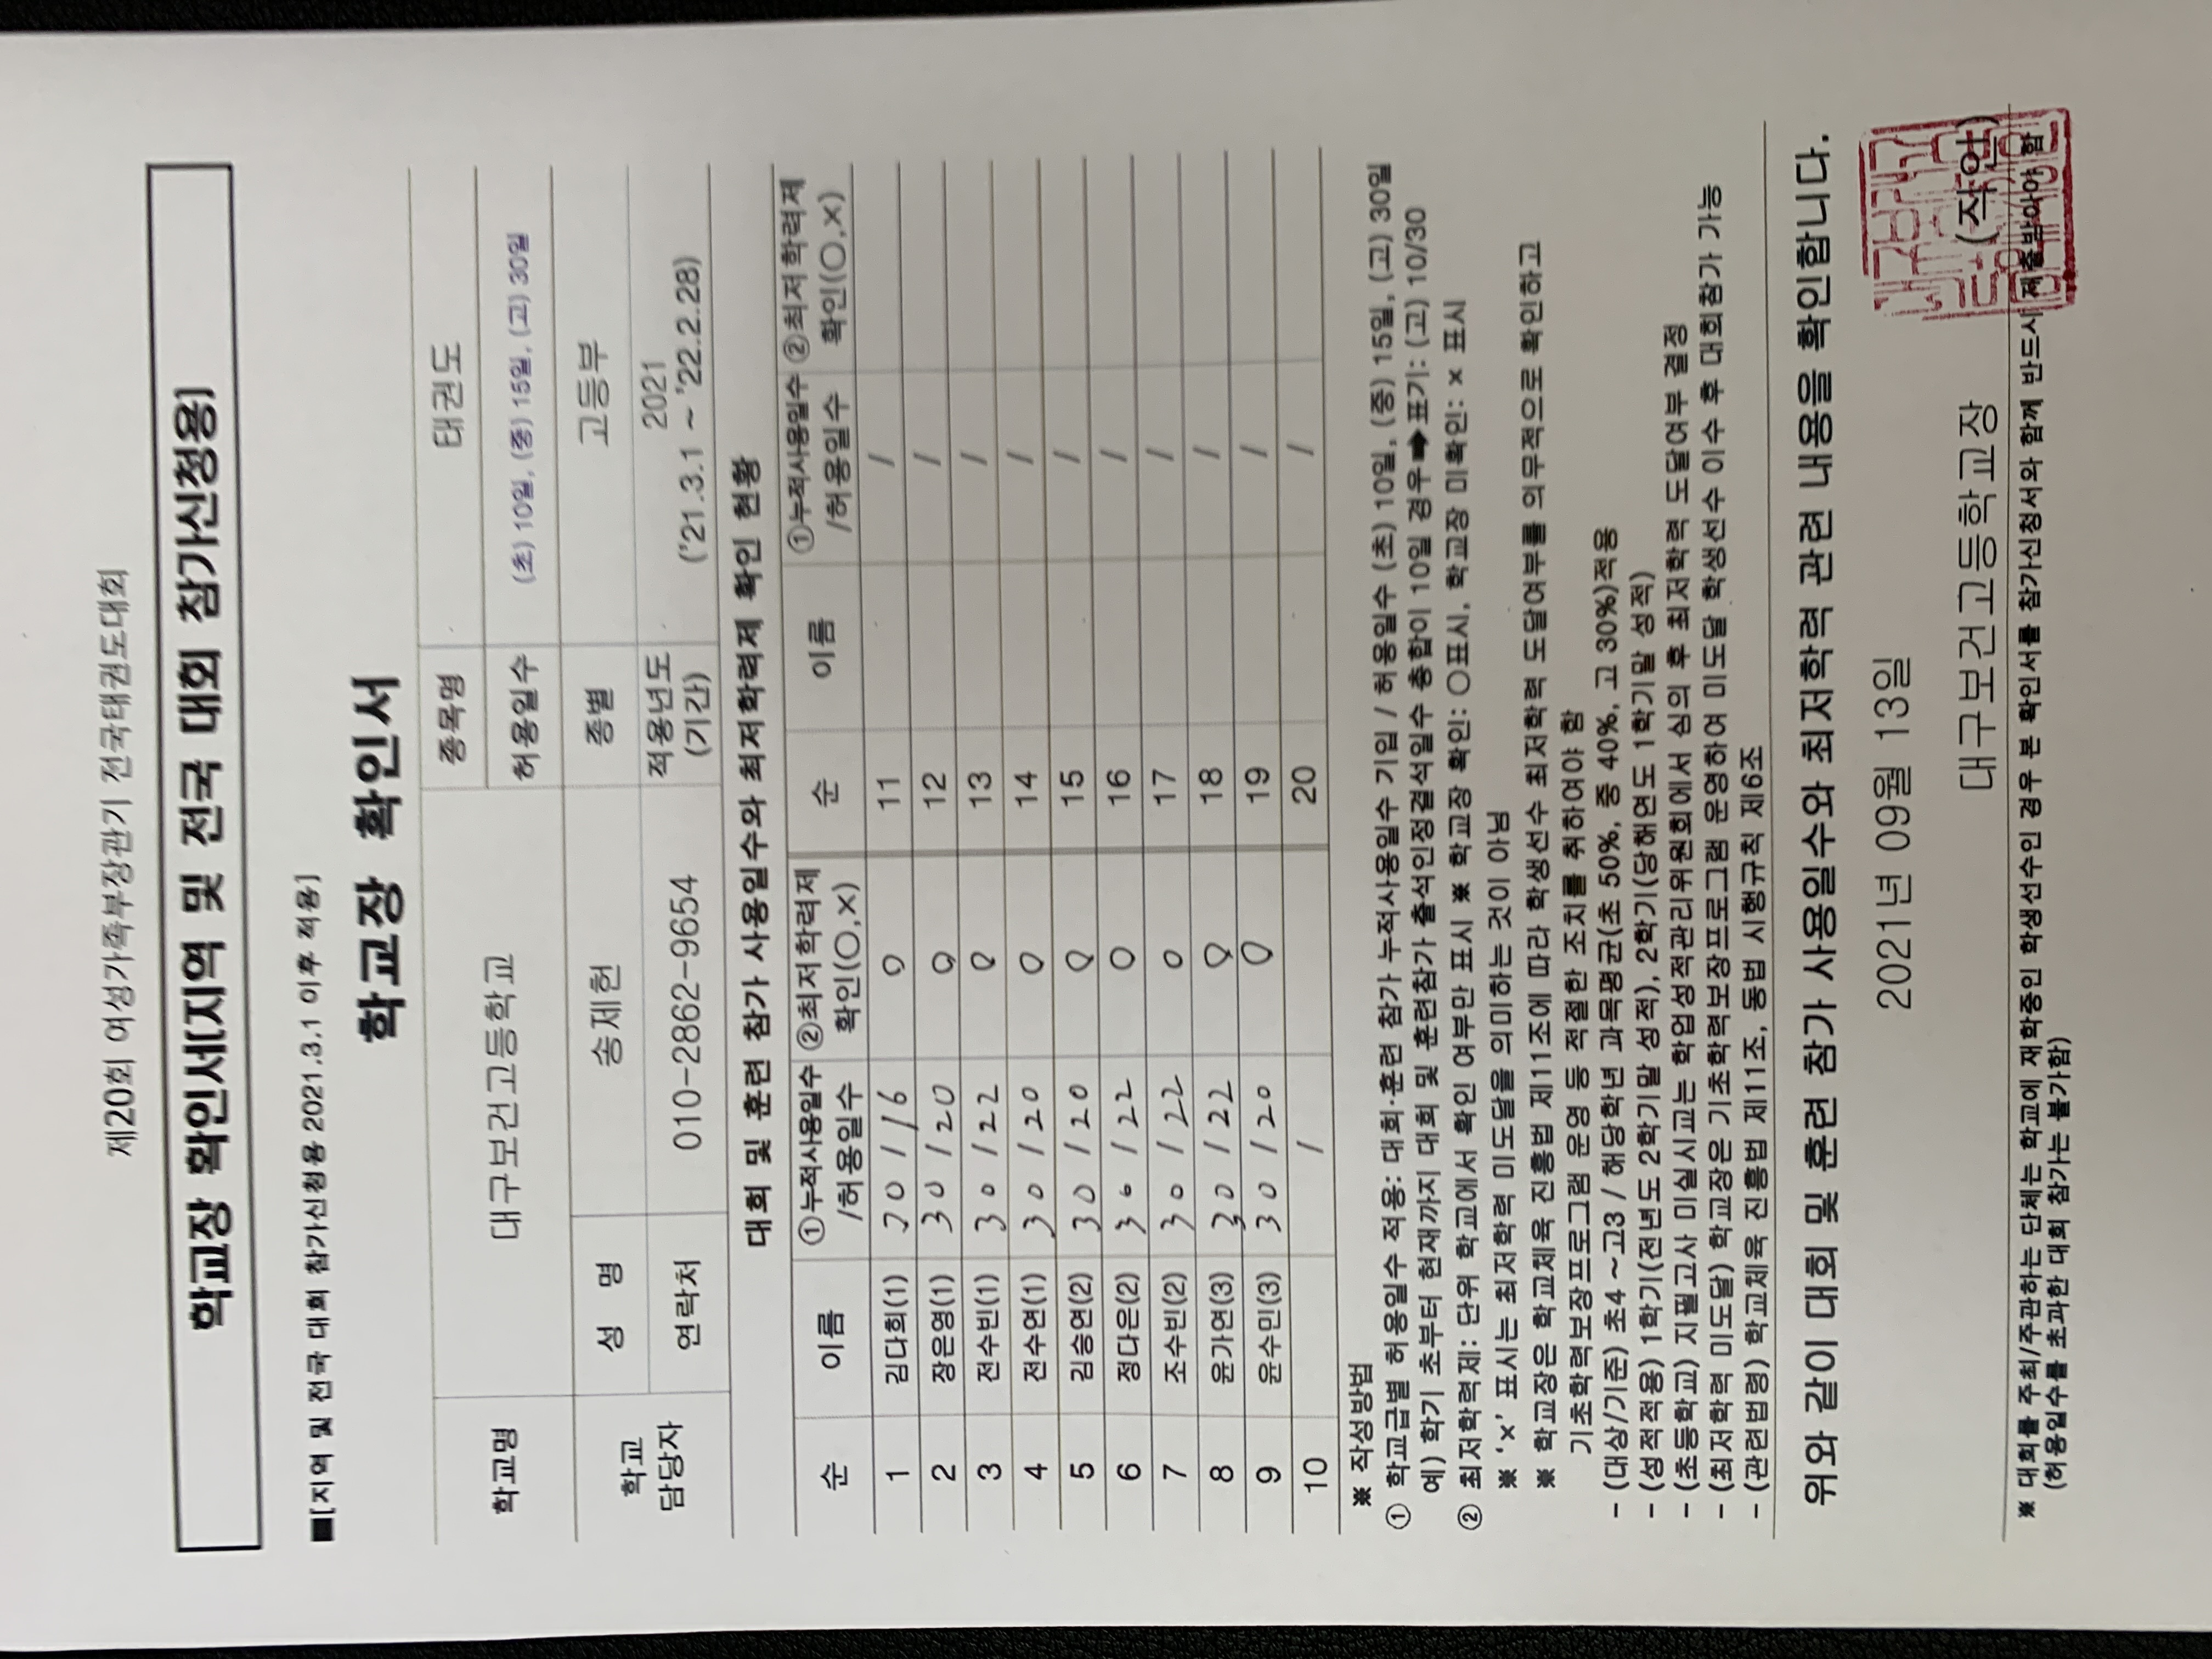 제20회 여성가족부장관기 전국태권도대회
학교장 확인서(지역 및 전국 대회 참가신청용)
■[지역 및 전국 대회 참가신청용 2021.3.1 이후 적용]
학교장 확인서
학교명 대구보건고등학교 종목명 태권도
허용일수 (초) 10일, (중) 15일, (고) 30일
학교 담당자 성 명 송제헌 종별 고등부
연락처 010-2862-9654 적용년도 (기간) 2021 ('21.3.1 ~ '22.2.28)
대회 및 훈련 참가 사용일수와 최저학력제 확인 현황
순 이름 ①누적사용일수 /허용일수 ②최저학력제 확인(○,×) 순 이름 ①누적사용일수 /허용일수 ②최저학력제 확인(○,×)
1 김다희(1) 30 / 16 ○ 11 /
2 장은영(1) 30 / 20 ○ 12 /
3 전수빈(1) 30 / 22 ○ 13 /
4 전수연(1) 30 / 20 ○ 14 /
5 김승연(2) 30 / 20 ○ 15 /
6 정다은(2) 30 / 22 ○ 16 /
7 조수빈(2) 30 / 22 ○ 17 /
8 윤가연(3) 30 / 22 ○ 18 /
9 윤수민(3) 30 / 20 ○ 19 /
10 / 20 /
※ 작성방법
① 학교급별 허용일수 적용: 대회·훈련 참가 누적사용일수 기입 / 허용일수 (초) 10일, (중) 15일, (고) 30일
예) 학기 초부터 현재까지 대회 및 훈련참가 출석인정결석일수 총합이 10일 경우➡표기: (고) 10/30
② 최저학력제: 단위 학교에서 확인 여부만 표시 ※ 학교장 확인: ○표시, 학교장 미확인: × 표시
※ '×' 표시는 최저학력 미도달을 의미하는 것이 아님
※ 학교장은 학교체육 진흥법 제11조에 따라 학생선수 최저학력 도달여부를 의무적으로 확인하고
기초학력보장프로그램 운영 등 적절한 조치를 취하여야 함
- (대상/기준) 초4 ~ 고3 / 해당학년 과목평균(초 50%, 중 40%, 고 30%)적용
- (성적적용) 1학기(전년도 2학기말 성적), 2학기(당해연도 1학기말 성적)
- (초등학교) 지필고사 미실시교는 학업성적관리위원회에서 심의 후 최저학력 도달여부 결정
- (최저학력 미도달) 학교장은 기초학력보장프로그램 운영하여 미도달 학생선수 이수 후 대회참가 가능
- (관련법령) 학교체육 진흥법 제11조, 동법 시행규칙 제6조
위와 같이 대회 및 훈련 참가 사용일수와 최저학력 관련 내용을 확인합니다.
2021년 09월 13일
대구보건고등학교장 (직인)
※ 대회를 주최/주관하는 단체는 학교에 재학중인 학생선수인 경우 본 확인서를 참가신청서와 함께 반드시 제출받아야 함
(허용일수를 초과한 대회 참가는 불가함)